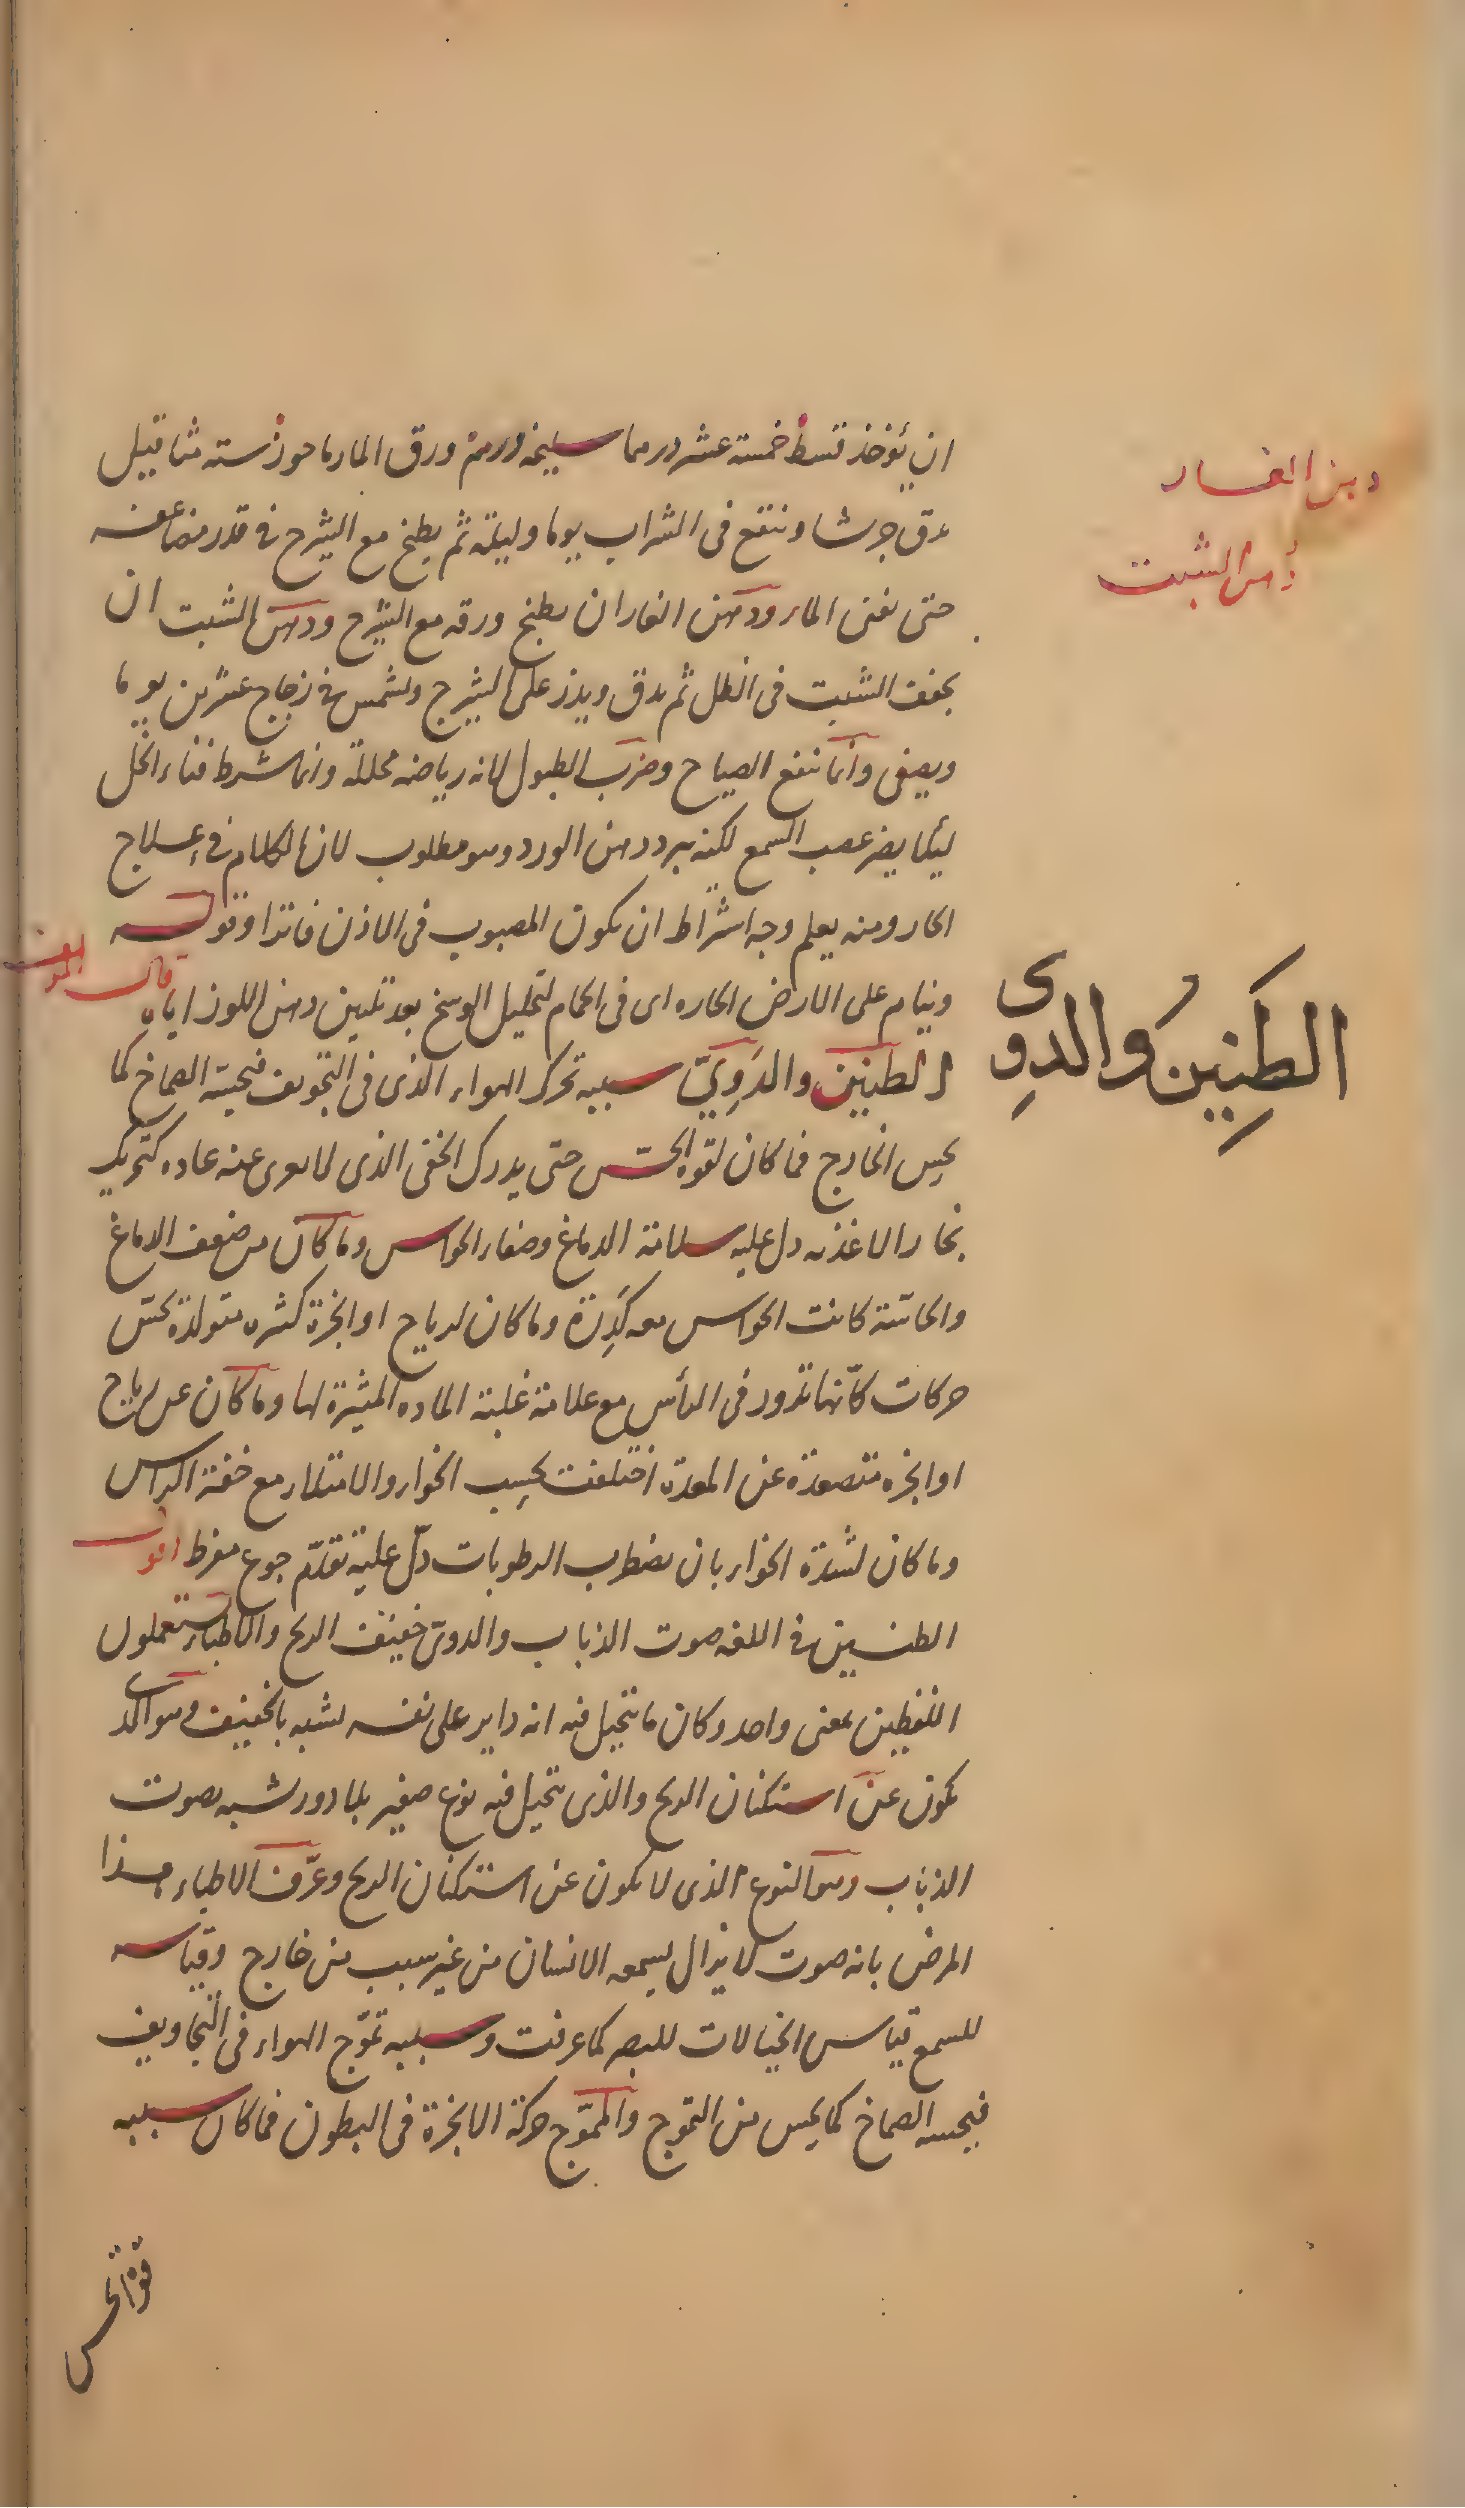 دهن الغار
دهن الشبت
ان يؤخذ قسط خمسة عشر درهما سليخه درهم ورق المارماحوز سته مثاقيل
يدق جرشا وينقع فى الشراب يوما وليلة ثم يطبخ مع الشيرج فى قدر مضاعفه
حتى يفنى الماء ودهن الغار ان يطبخ ورقه مع الشيرج ودهن الشبت ان
يجفف الشبت فى الظل ثم يدق ويذر على الشيرج ويشمس فى زجاج عشرين يوما
ويصفى وانما ينفع الصياح وضرب الطبول لانه رياضه محللة وانما شرط فناء الخل
ليلا يضر عصب السمع لكنه يبرد دهن الورد وهو مطلوب لان الكلام فى علاج
الحار ومنه يعلم وجه اشتراط ان يكون المصبوب فى الاذن فاترا وقوله
وينام على الارض الحاره اى فى الحمام لتحليل الوسخ بعد تليين دهن اللوز اياه قال المولف
الطَنِينُ والدوِى
الطنين والدَوِىّ سببه تحرك الهواء الذى فى التجويف فيحسّه الصماخ كما
يحس الخارج فما كان لقوه الحسّ حتى يدرك الخفى الذى لا يعرى عنه عاده كتحريك
بخار الاغذيه دل عليه سلامة الدماغ وصفاء الحواس وما كان من ضعف الدماغ
والحاسّة كانت الحواس معه كَدِرَة وما كان لرياح او ابخرة كثيره متولدة يحسّ
حركات كأنها تدور فى الرأس مع علامة غلبة الماده المثيرة لها وما كان عن رياح
او ابخره متصعدة عن المعدة اختلفت بحسب الخواء والامتلاء مع خفة الراس
وما كان لشدة الخواء بان يضطرب الرطوبات دلّ عليه تقدّم جوع مفرط اقول
الطنين فى اللغه صوت الذباب والدوىّ خفيف الريح والاطباء يستعملون
اللفظين بمعنى واحد وكان ما يتخيل فيه انه داير على نفسه يشبه بالخفيف وهو الذى
يكون عن استكنان الريح والذى يتخيل فيه نوع صفير بلا دور يشبه بصوت
الذباب وهو النوع الذى لا يكون عن استكنان الريح وعرّف الاطباء هذا
المرض بانه صوت لا يزال يسمعه الانسان من غير سبب من خارج وقياسه
للسمع قياس الخيالات للبصر كما عرفت وسببه تموّج الهواء فى التجاويف
فيحسه الصماخ كما يحس من التموج والمموّج حركة الابخرة فى البطون فما كان سببه
قوة الحس